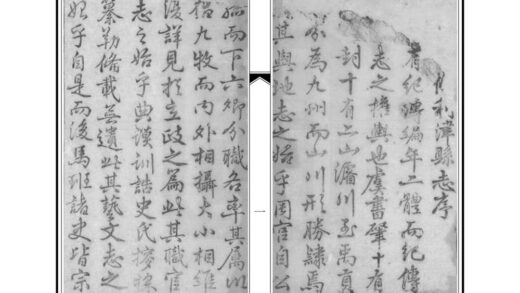 利津縣志序
有紀傳編年二體而紀傳
志之權輿也虞書肇十有
封十有二山濬川至禹貢
分為九州而山川形勝隸焉
其輿地志之始乎周官自公
一
孤而下六卿分職各率其屬以
倡九牧而內外相攝大小相維
復詳見於立政之篇此其職官
志之始乎典謨訓誥史氏
纂勒備載無遺此其藝文志之
始乎自是而後馬班諸史皆宗